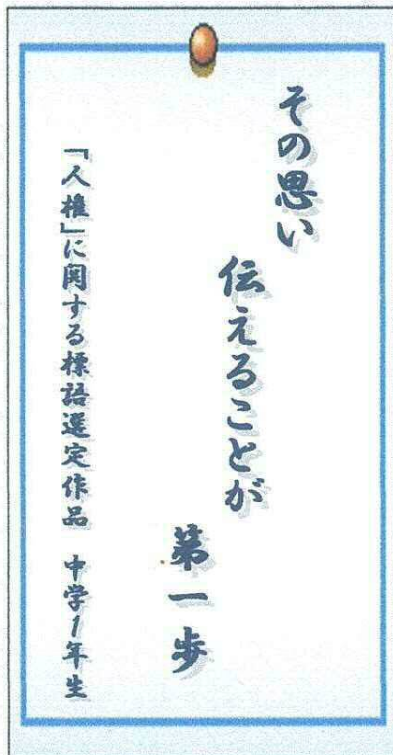 その思い
伝えることが
第一歩
「人権」に関する標語選定作品 中学1年生